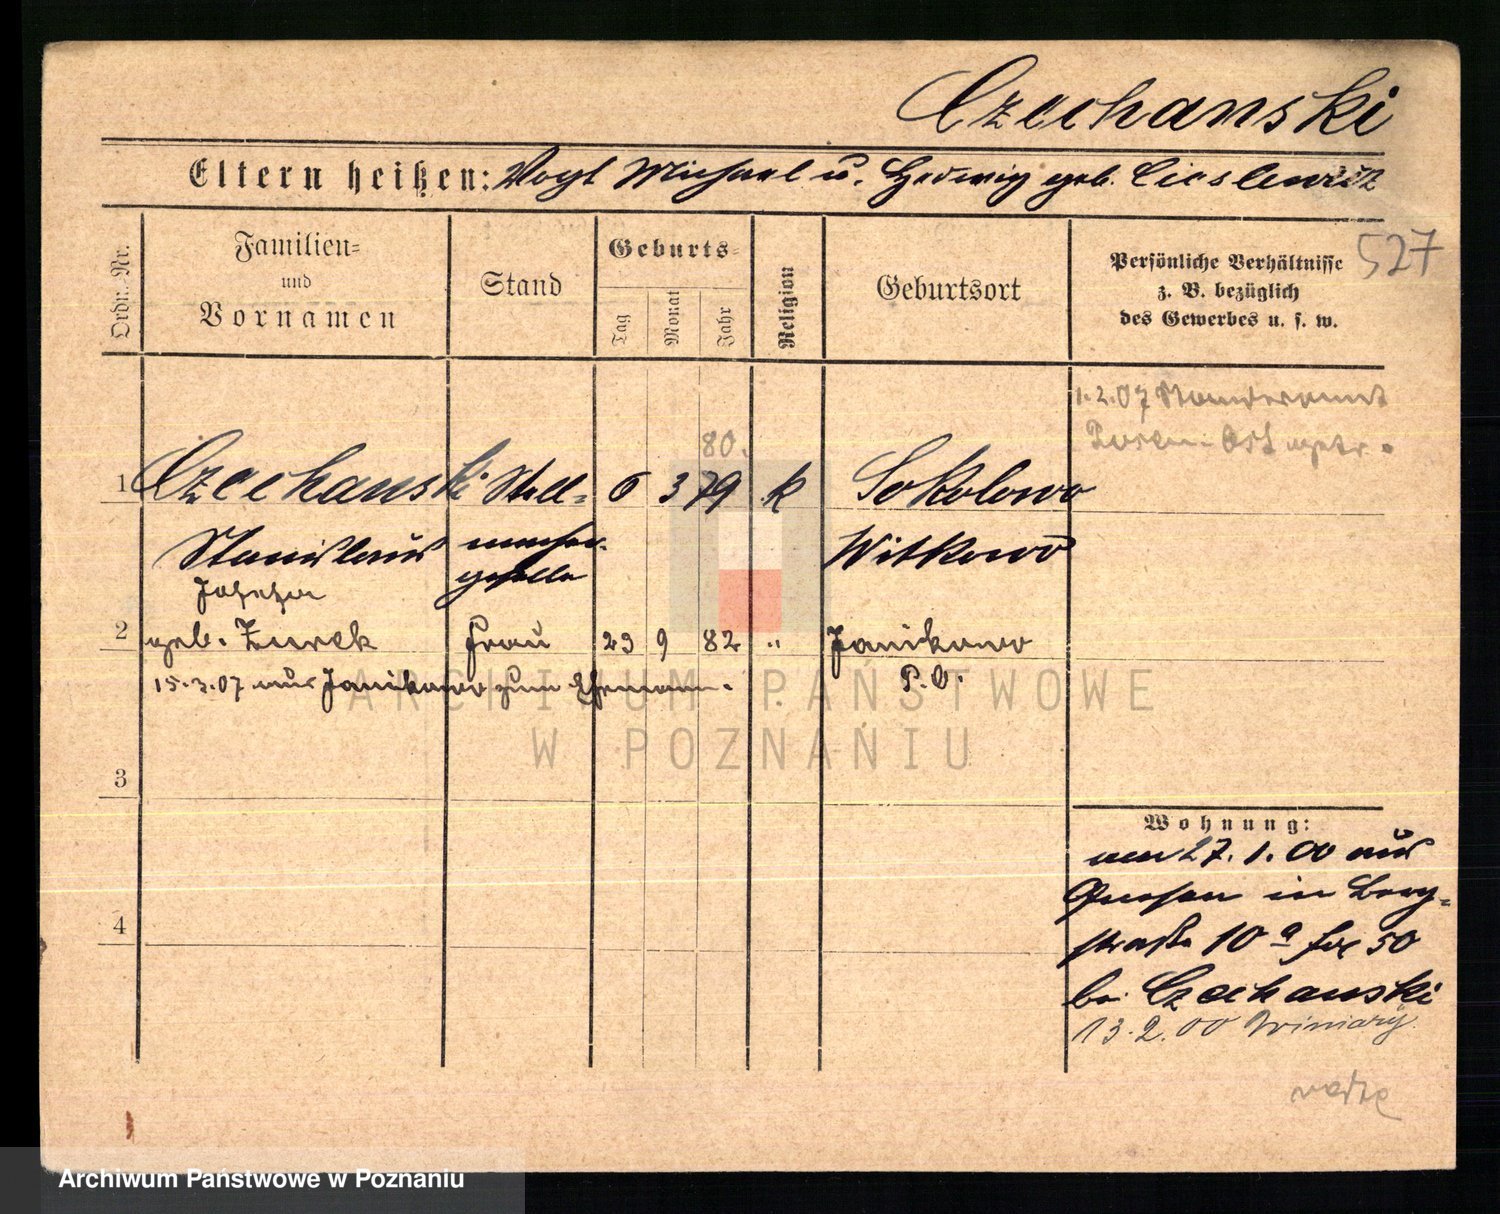 Czechanski
Eltern heißen: Vogt Michael u. Hedwig geb. Cieslewicz
527
Ordn.-Nr.
Familien-
und
Vornamen
Stand
Geburts-
Tag
Monat
Jahr
Religion
Geburtsort
Persönliche Verhältnisse
z. B. bezüglich
des Gewerbes u. s. w.
1.2.07 Standesamt
Posen-Ost getr.
80.
1 Czechanski Stell- 6 3 79 k Sokolowo
Stanislaus macher- Witkowo
geselle
2 geb. Zurek Frau 23 9 82 " Janikowo
15.3.07 aus Janikowo zum Ehemann. P.O.
ARCHIWUM PAŃSTWOWE
W POZNANIU
3
Wohnung:
am 27.1.00 aus
Gnesen in Berg-
4
straße 10a 50
bei Czechanski
13.2.00 Winiary
Archiwum Państwowe w Poznaniu